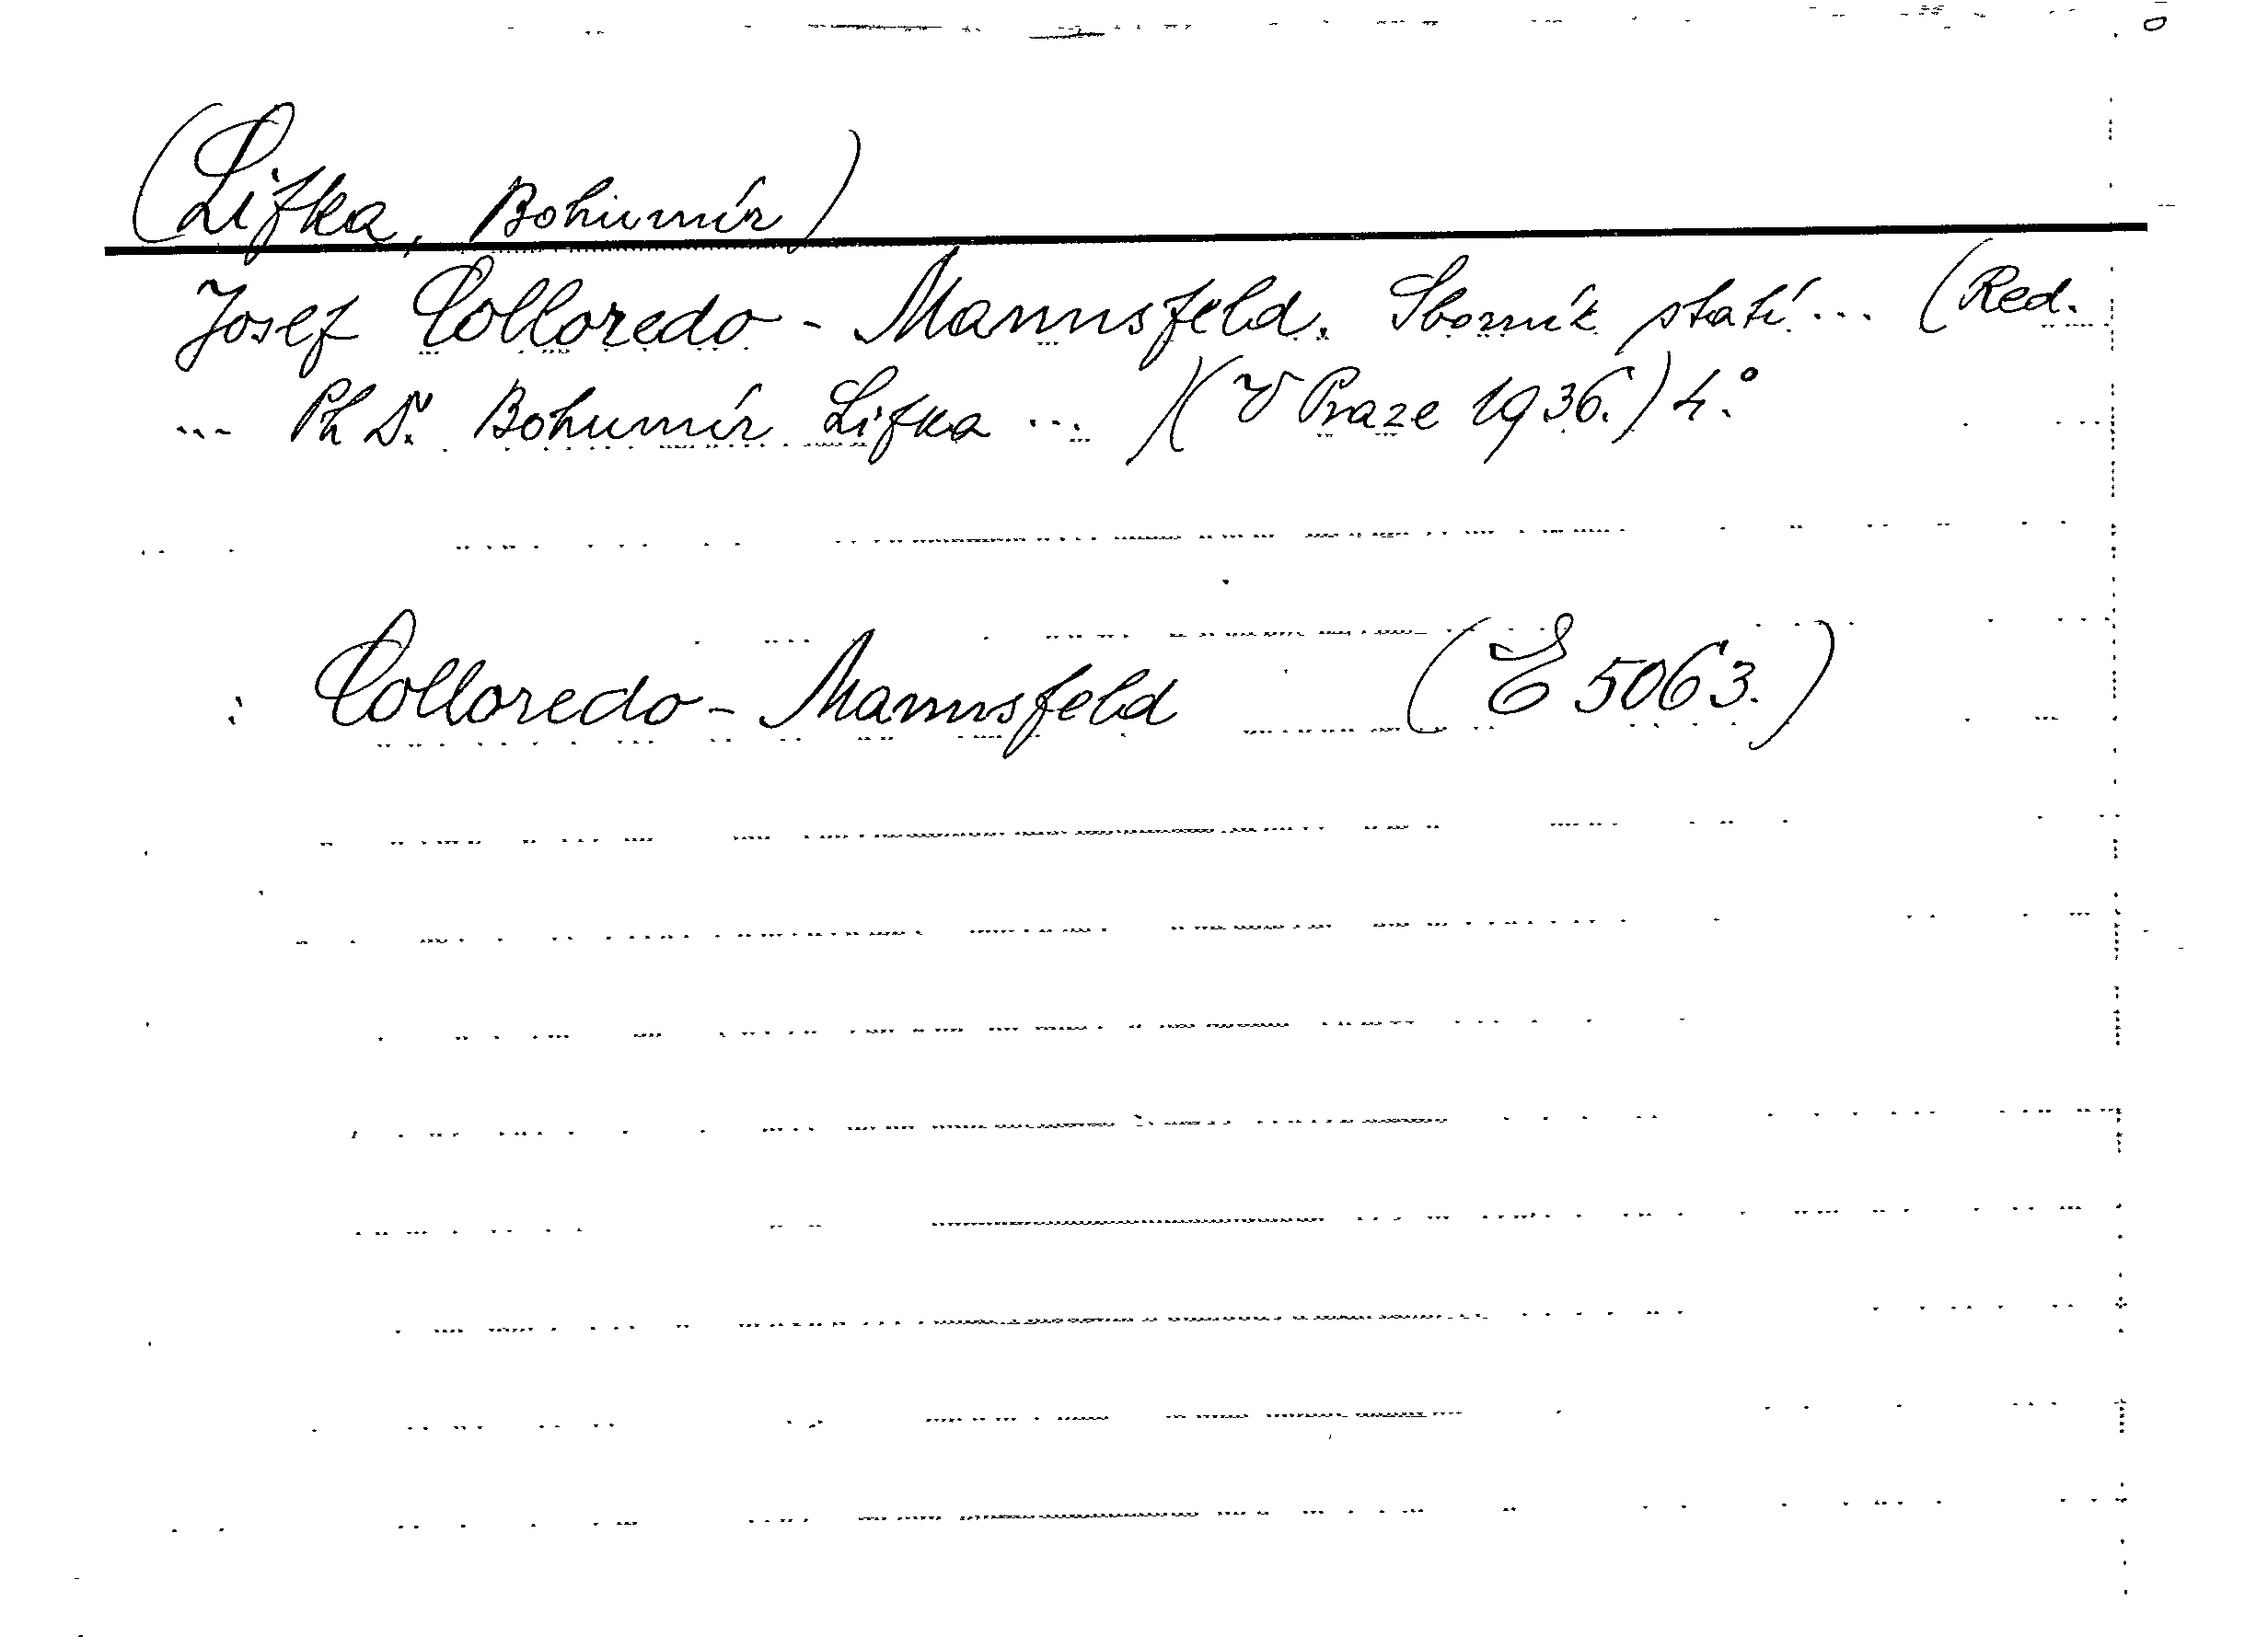 (Lifka, Bohumír)
Josef Colloredo - Mannsfeld. Sborník statí ... (Red.
... PhDr. Bohumír Lifka ... )(V Praze 1936.) 4°.
: Colloredo - Mannsfeld (E 5063.)